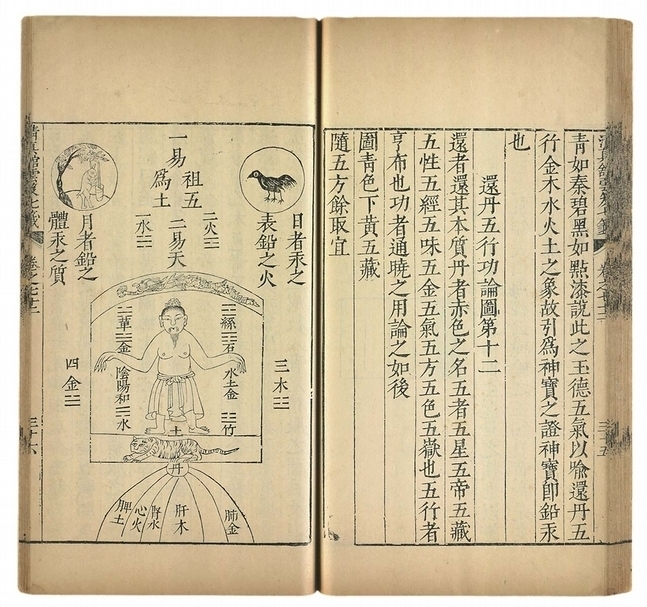 青如秦碧黑如點漆說此之玉德五氣以喻還丹五
行金木水火土之象故引爲神寶之證神寶即鉛汞
也
還丹五行功論圖第十二
還者還其本質丹者赤色之名五者五星五帝五藏
五性五經五味五金五氣五方五色五嶽也五行者
亨布也功者通曉之用論之如後
圖青色下黃五藏
隨五方餘取宜
日者汞之
表鉛之火
祖五
二火☲
二易天
一易
爲土
一水☵
月者鉛之
體汞之質
三木
四金
石
水土金
竹
金
陰陽和
水
土
丹
肺金
肝木
腎水
心火
脾土
卷之七十二
三十六